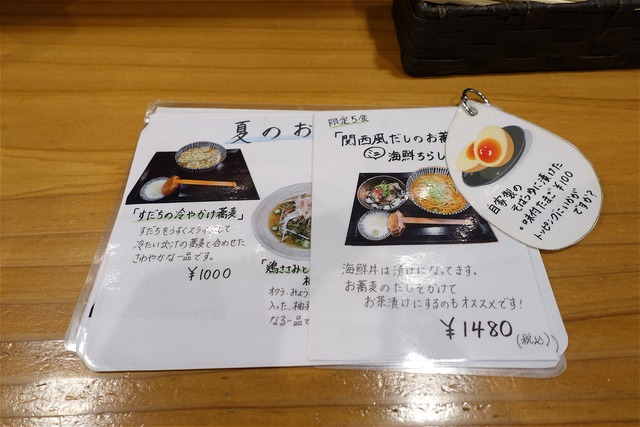 夏のお
「すだちの冷やかけ蕎麦」
すだちをうすくスライスして
冷たい出汁の蕎麦と合わせた
さわやかな一品です。
¥1000
「鶏ささみと
オクラ、みょう
入った、柚
なる一品で
限定5食
「関西風だしのお蕎
ミニ海鮮ちらし
海鮮丼は漬けになってます。
お蕎麦のだしをかけて
お茶漬けにするのもオススメです!
¥1480(税込)
自家製の
そばつゆに漬けた
味付たまご¥100
トッピングにいかが
ですか?